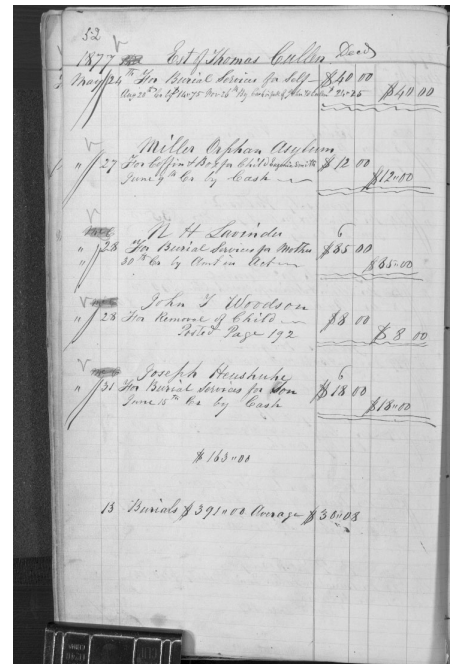 52
1877 Est of Thomas Cullen Decd
May 24th For Burial Services for Self $40 00
Aug 20th $14.75 Nov 26th By $25.25 $40 00
Miller Orphan Asylum
" 27 For Coffin & Box for Child Smith $12 00
June 9th Cr by Cash $12"00
N H Lavinder 6
" 28 For Burial Services for Mother $85 00
" 30th Cr by Amt in Act $85"00
John T Woodson
" 28 For Removal of Child $8 00
Posted Page 192 $8 00
Joseph 6
" 31 For Burial Services for Son $18 00
June 15th Cr by Cash $18"00
$163"00
13 Burials $391"00 Average $30"08